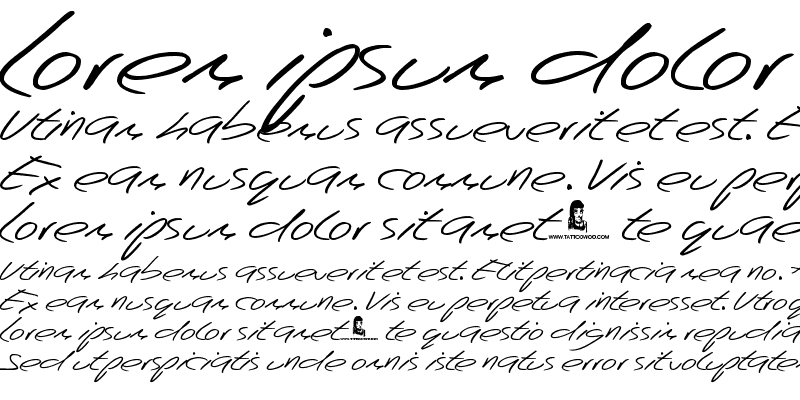 Lorem ipsum dolor
Utinam habemus assueverit et est. E
Ex eam nusquam commune. Vis eu perp
Lorem ipsum dolor sit amet WWW.TATTOOWOO.COM te quae
Utinam habemus assueverit et est. Elit pertinacia mea no.
Ex eam nusquam commune. Vis eu perpetua interesset. Utroq
Lorem ipsum dolor sit amet te quaestio dignissim repudia
Sed ut perspiciatis unde omnis iste natus error sit voluptatem